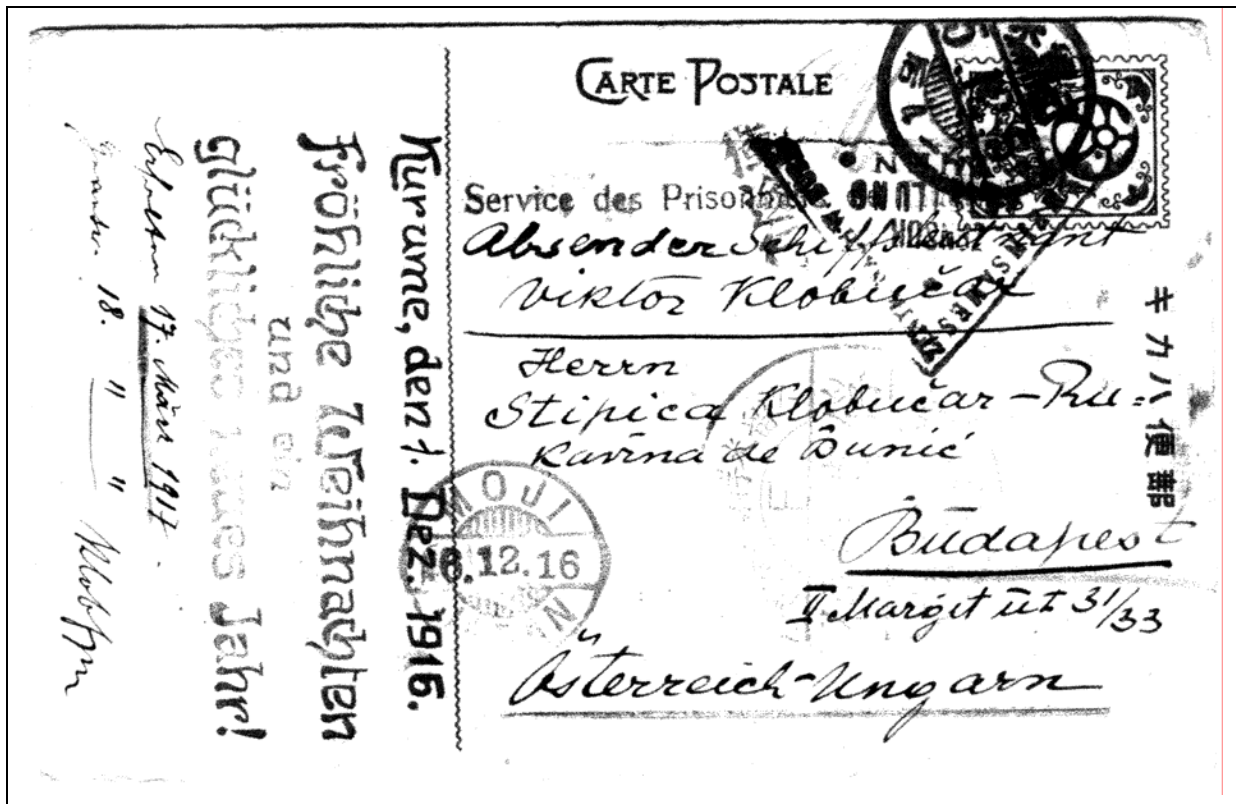 CARTE POSTALE
Service des
Absender Schiffsleutnant
Viktor Klobučar
Herrn
Stipica Klobučar-Ru=
kavina de Bunić
Budapest
II Margit út 31/33
Österreich-Ungarn
キカハ便郵
MOJI
12.16
Kurume, den 1. Dez. 1916.
Fröhliche Weihnachten
und ein
glückliches neues Jahr!
Erhalten 17. März 1917.
18. " "